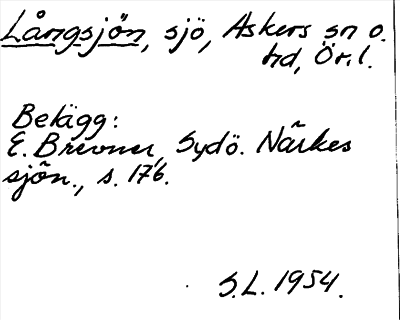 Långsjön, sjö, Askers sn o.
hd, Ör.l.
Belägg:
E. Brevner, Sydö. Närkes
sjön., s. 176.
S.L. 1954.